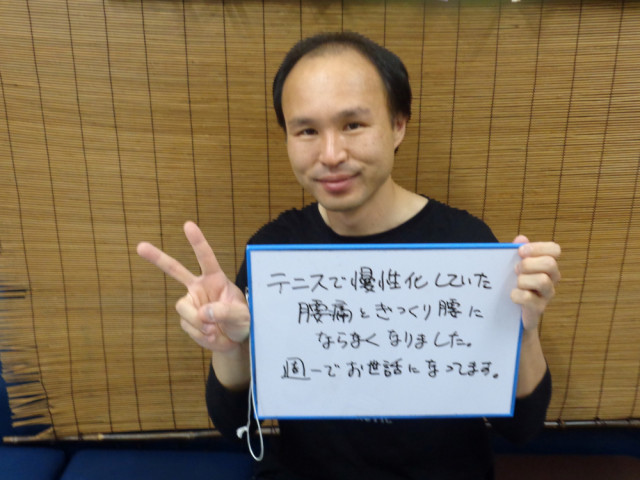 テニスで慢性化していた
腰痛とぎっくり腰に
ならなくなりました。
週一でお世話になってます。